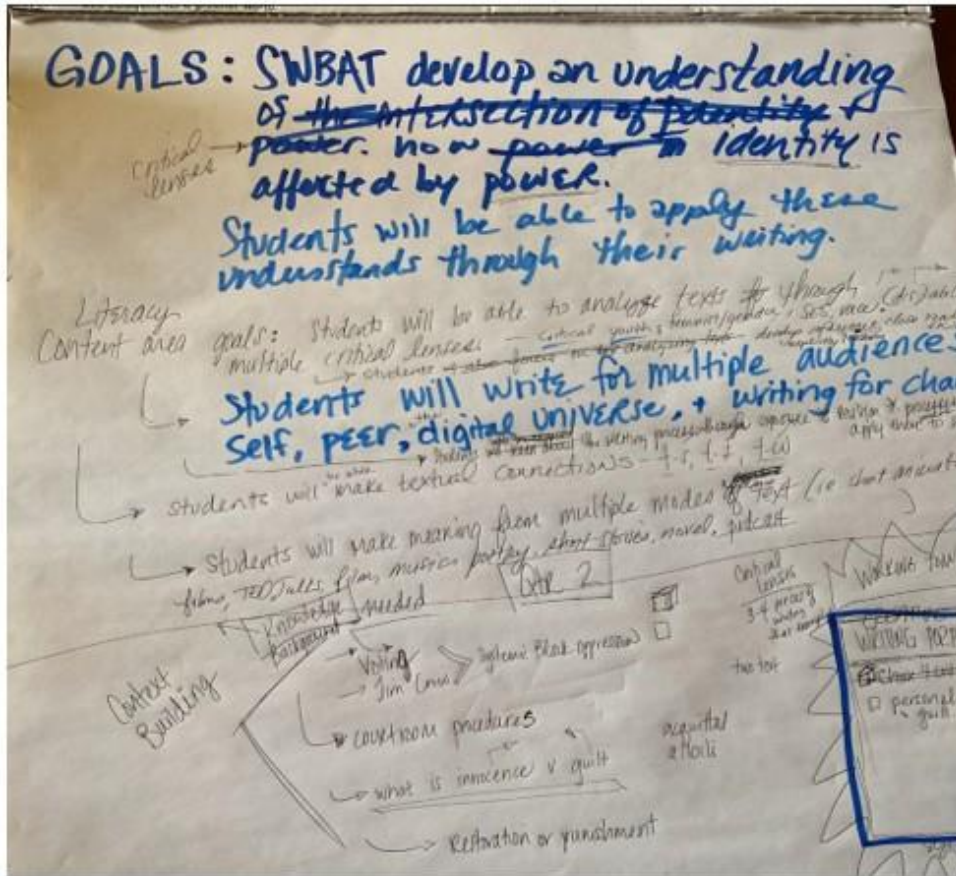 GOALS: SWBAT develop an understanding
of the intersection of identity +
power. how power in identity is
affected by power.
critical
lenses
Students will be able to apply these
understands through their writing.
Literacy
Content area goals: students will be able to analyze texts through
multiple critical lenses. — critical youth, feminist/gender, SES, race, (dis)abil
students
Students will write for multiple audiences
self, peer, digital universe, + writing for cha
students will the writing process through exposure to
apply these to
students will make textual connections - t-s, t-t, t-w
Students will make meaning from multiple modes of text (ie short animat
films, TED Talks, film, music, poetry, short stories, novel, podcast
Knowledge needed
Background
DAR 2
Critical
Lenses
3-4 pieces of
writing
WORKING
Context
Building
Voting
Jim Crow
Systemic Black oppression
two
WRITING
personal
guilt
courtroom procedures
acquittal
what is innocence v guilt
Restoration or punishment